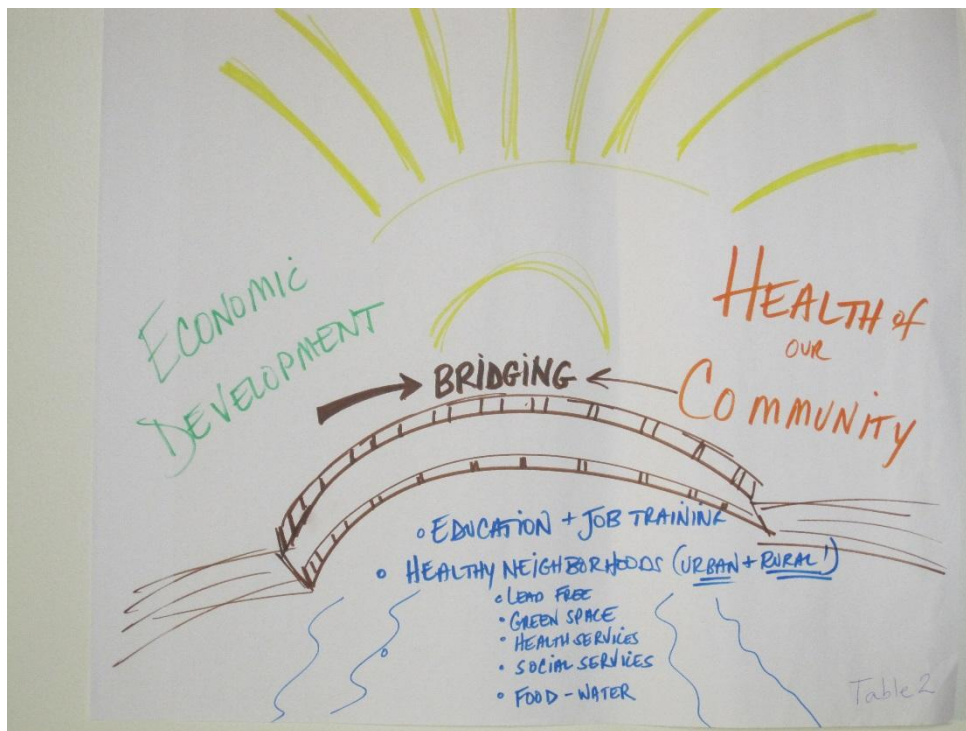 ECONOMIC
DEVELOPMENT
BRIDGING
HEALTH of
OUR
COMMUNITY
EDUCATION + JOB TRAINING
HEALTHY NEIGHBORHOODS (URBAN + RURAL!)
LEAD FREE
GREEN SPACE
HEALTH SERVICES
SOCIAL SERVICES
FOOD - WATER
Table 2